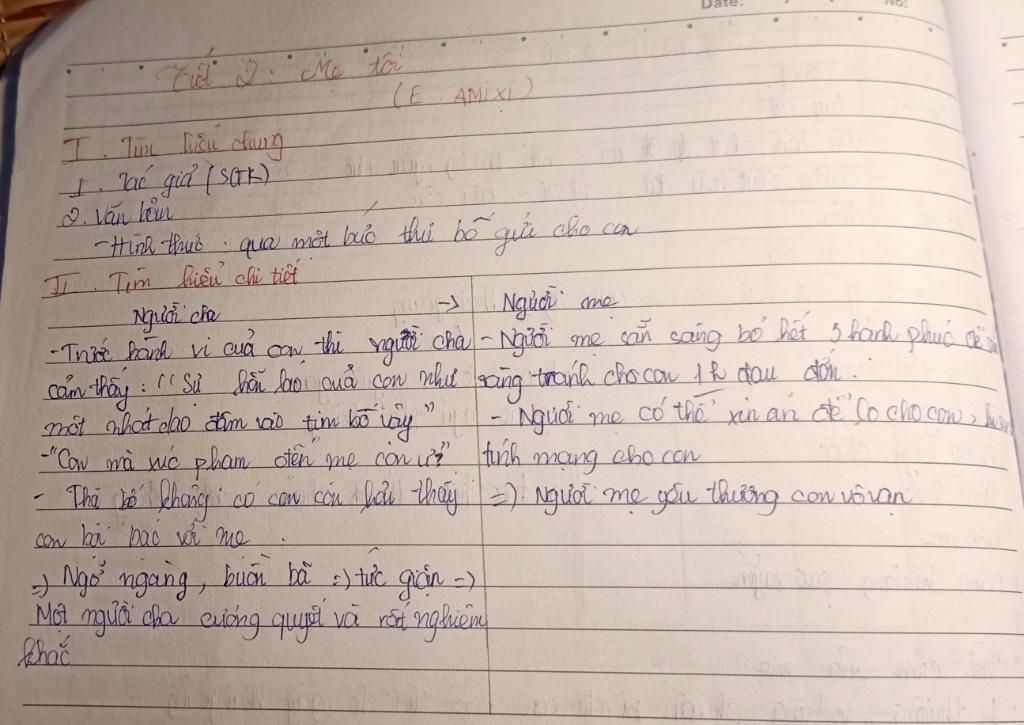 Date: No:
Tiết 2. Mẹ tôi
(E. AMIXI)
I. Tìm hiểu chung
1. Tác giả (SGK)
2. Văn bản
- Hình thức: qua một bức thư bố gửi cho con
II. Tìm hiểu chi tiết
Người cha
- Trước hành vi của con thì người cha
cảm thấy: "Sự hỗn láo của con như
một nhát dao đâm vào tim bố vậy"
- "Con mà xúc phạm đến mẹ con ư?"
- Thà bố không có con còn hơn thấy
con bội bạc với mẹ.
=> Ngỡ ngàng, buồn bã => tức giận =>
Một người cha cương quyết và rất nghiêm
khắc
-> Người mẹ
- Người mẹ sẵn sàng bỏ hết 5 hạnh phúc để
sàng tránh cho con 1h đau đớn.
- Người mẹ có thể xin ăn để co cho con,
tính mạng cho con
=> Người mẹ yêu thương con vô vàn